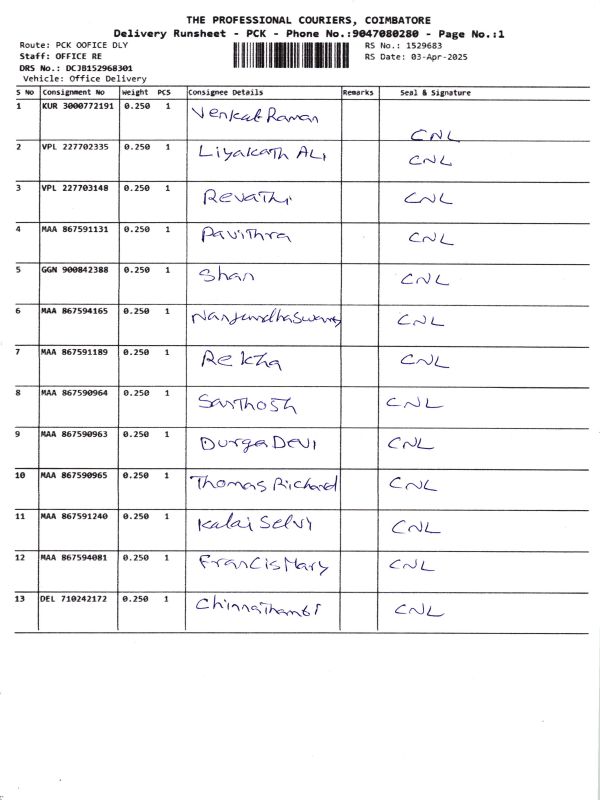 THE PROFESSIONAL COURIERS, COIMBATORE
Delivery Runsheet - PCK - Phone No.:9047080280 - Page No.:1
Route: PCK OOFICE DLY RS No.: 1529683
Staff: OFFICE RE RS Date: 03-Apr-2025
DRS No.: DCJB152968301
Vehicle: Office Delivery
S No Consignment No Weight PCS Consignee Details Remarks Seal & Signature
1 KUR 3000772191 0.250 1 Venkat Raman CNL
2 VPL 227702335 0.250 1 Liyakath Ali CNL
3 VPL 227703148 0.250 1 Revathi CNL
4 MAA 867591131 0.250 1 Pavithra CNL
5 GGN 900842388 0.250 1 Shan CNL
6 MAA 867594165 0.250 1 CNL
7 MAA 867591189 0.250 1 Rekha CNL
8 MAA 867590964 0.250 1 Santhosh CNL
9 MAA 867590963 0.250 1 Durga Devi CNL
10 MAA 867590965 0.250 1 Thomas Richard CNL
11 MAA 867591240 0.250 1 Kalai Selvi CNL
12 MAA 867594081 0.250 1 Francis Mary CNL
13 DEL 710242172 0.250 1 Chinnathambi CNL